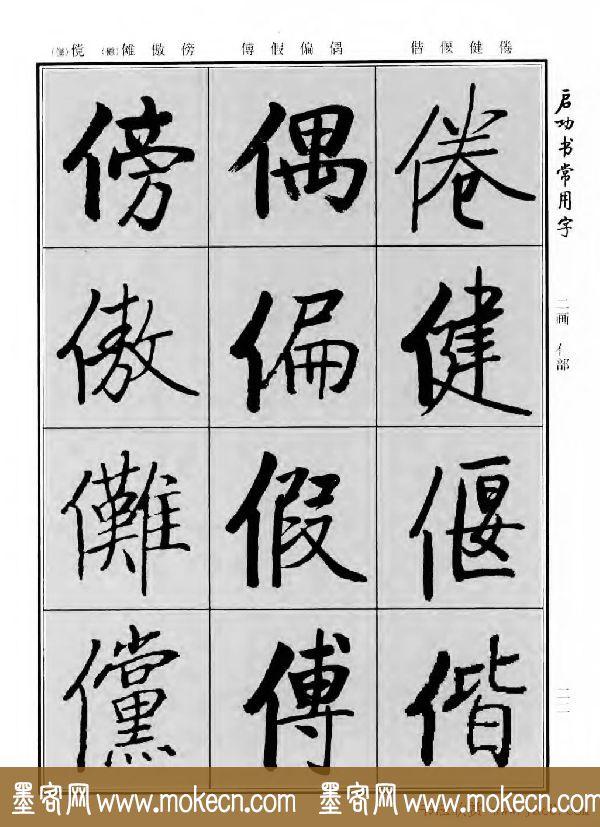 倦健偃偕 偶偏假傅 傍傲傩(儺)傥(儻)
启功书常用字
二画 亻部
倦
健
偃
偕
偶
偏
假
傅
傍
傲
儺
儻
墨客网 www.mokecn.com 墨客网 www.mokecn.com